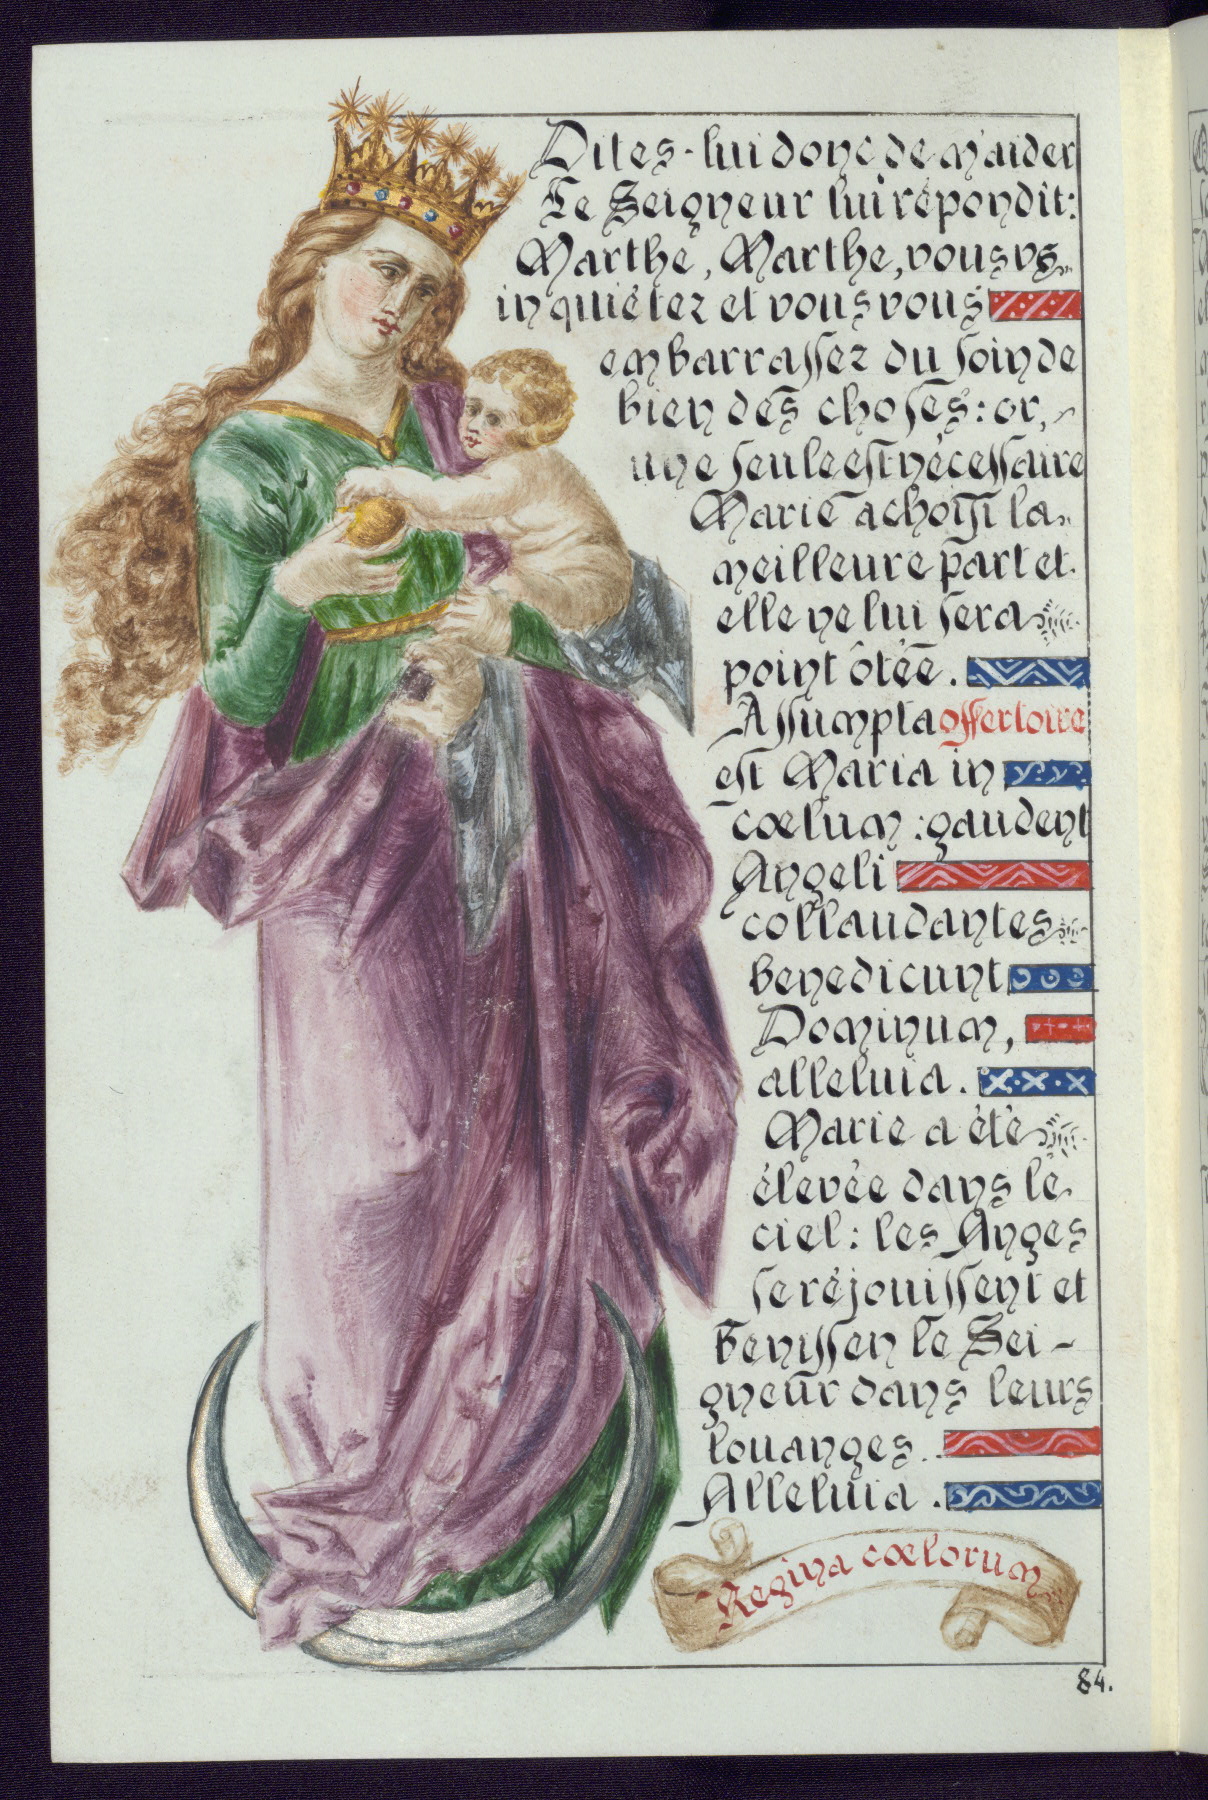 Dites-lui donc de m'aider
Le Seigneur lui répondit:
Marthe, Marthe, vous vs
inquiétez et vous vous
embarrassez du soin de
bien des choses: or,
une seule est nécessaire
Marie a choisi la
meilleure part et
elle ne lui sera
point ôtée.
Assumpta offertoire
est Maria in
cœlum: gaudent
Angeli
collaudantes
benedicunt
Dominum,
alleluia.
Marie a été
élevée dans le
ciel: les Anges
se réjouissent et
benissen le Sei-
gneur dans leurs
louanges.
Alleluia.
Regina cœlorum
84.